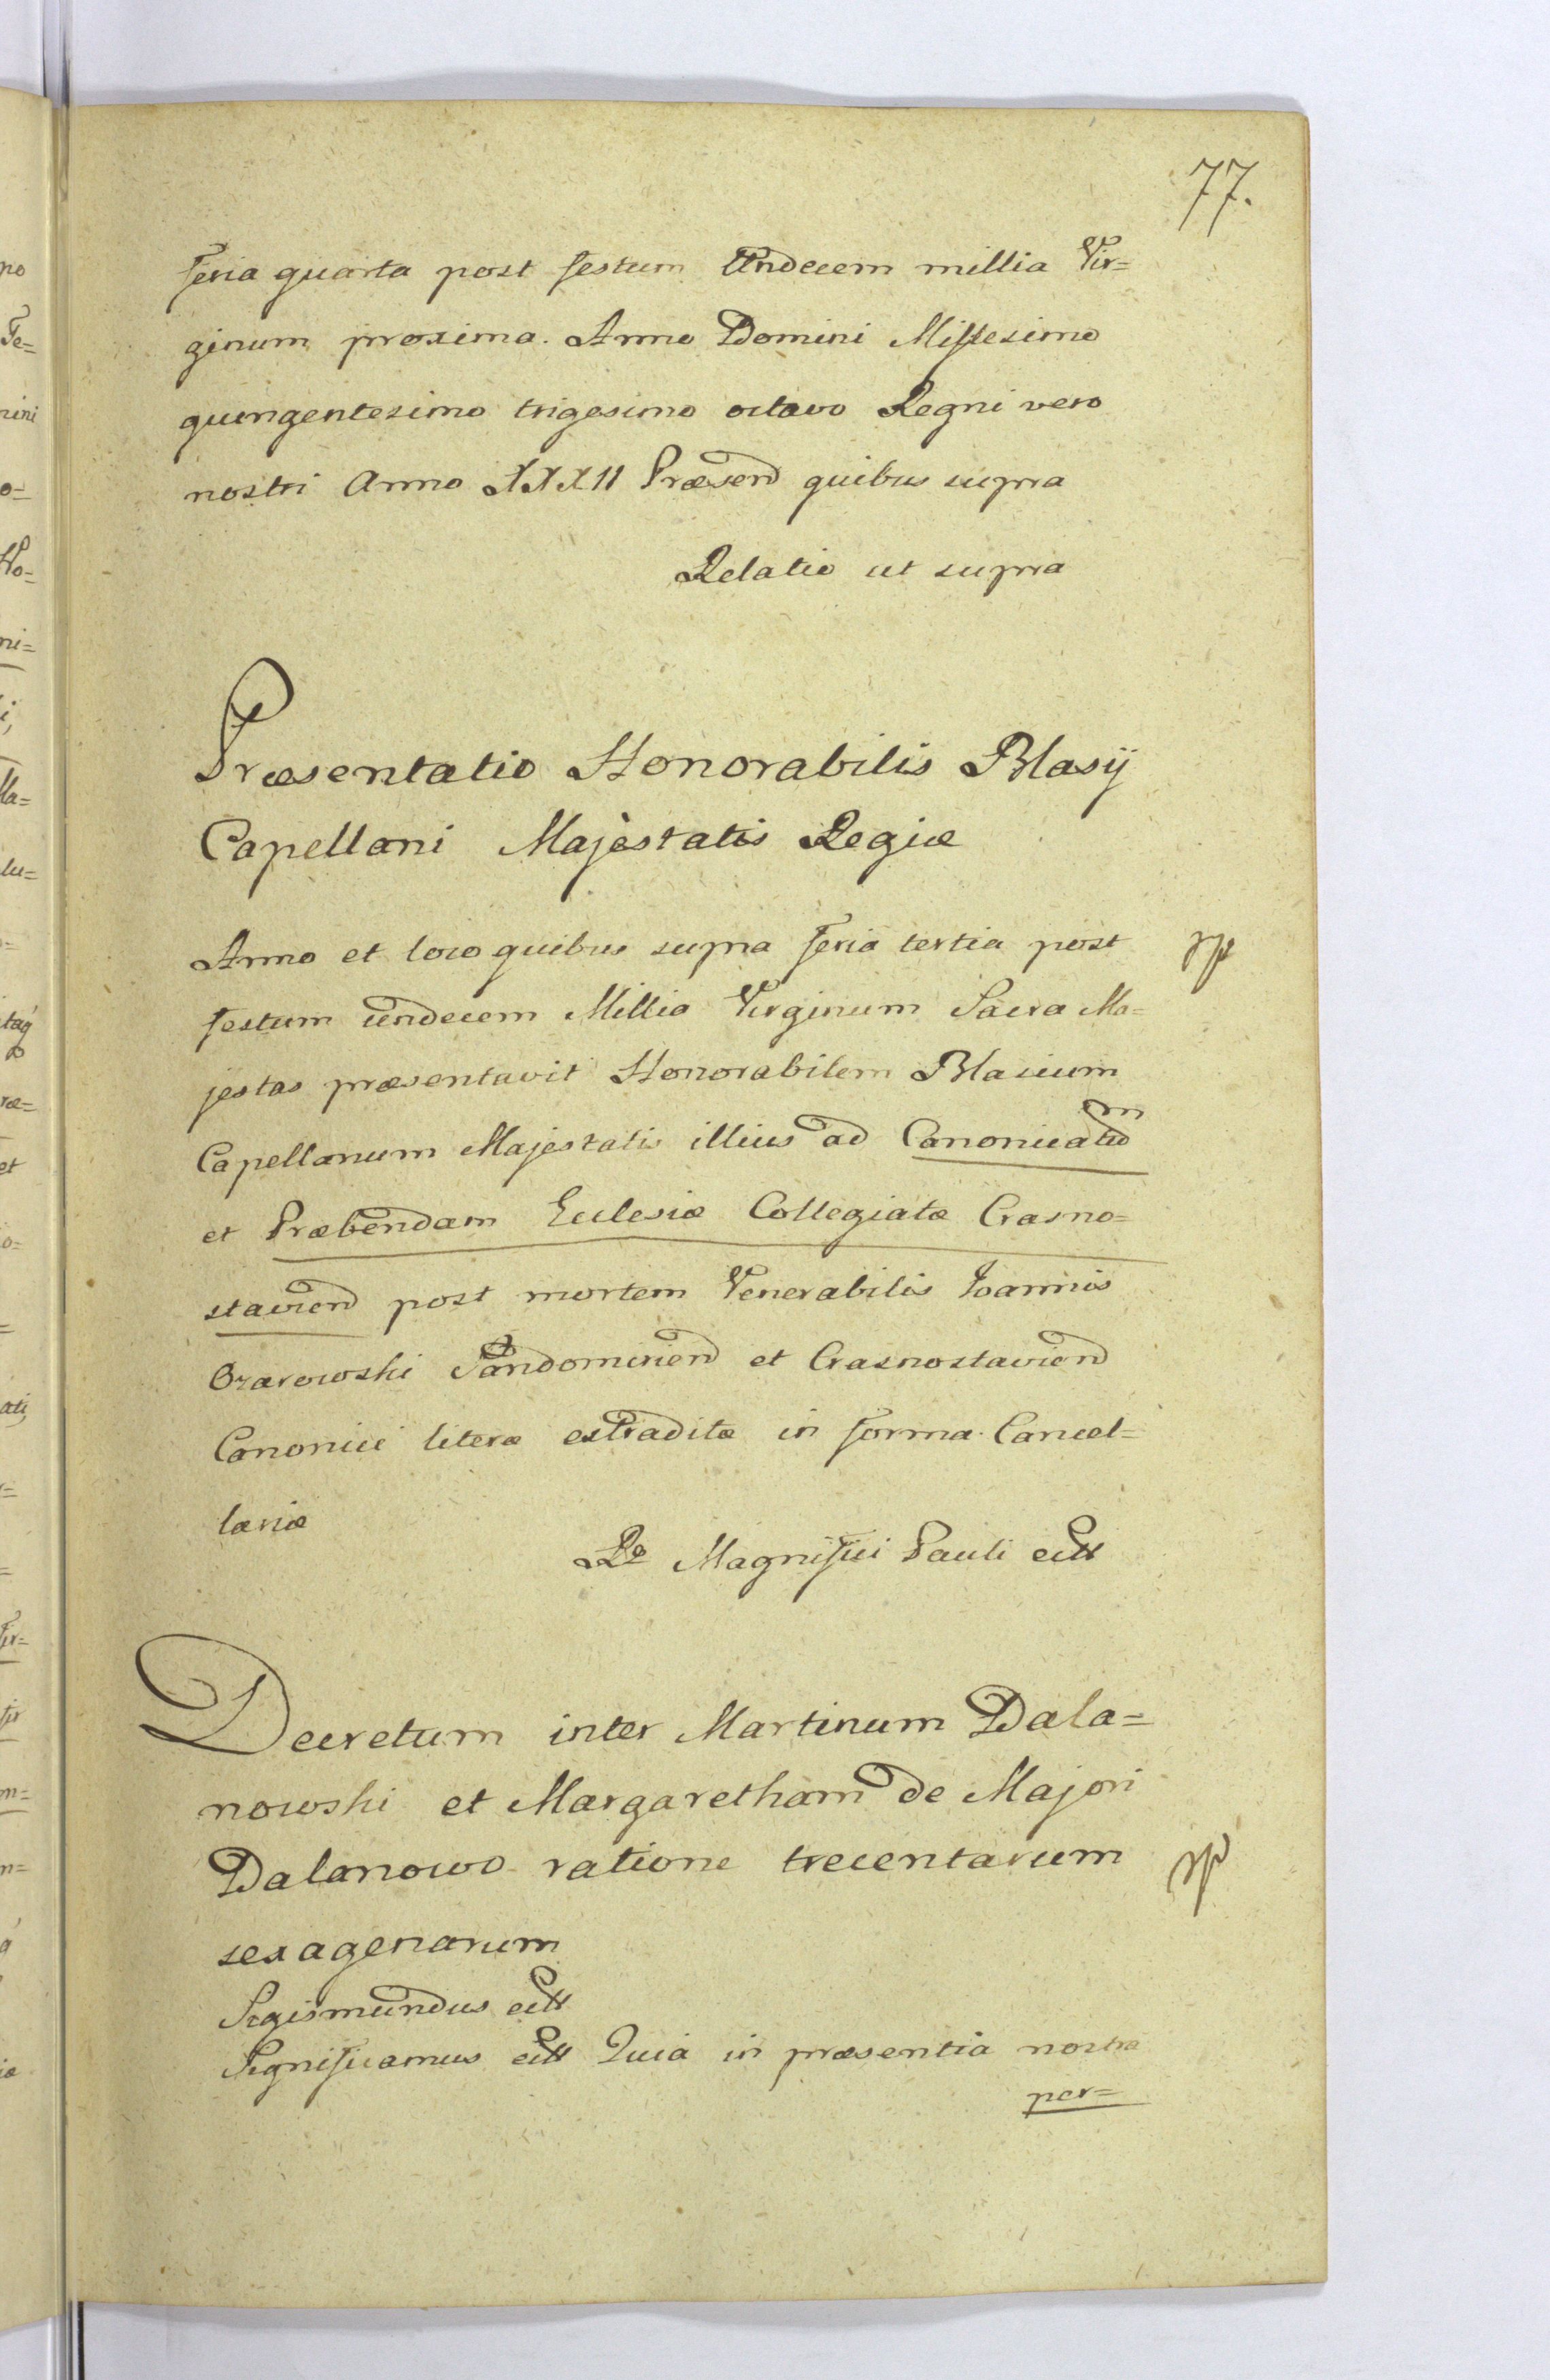 77.
feria quarta post festum Undecem millia Vir=
ginum proxima. Anno Domini Millesimo
quingentesimo trigesimo octavo Regni vero
nostri Anno XXXII Præsend quibus supra
Relatio ut supra
Præsentatio Honorabilis Blasij
Capellani Majestatis Regiæ
Anno et loco quibus supra feria tertia post
festum undecem Millia Virginum Sacra Ma=
jestas præsentavit Honorabilem Blasium
Capellanum Majestatis illius ad Canonicatum
et Præbendam Eclesiæ Collegiatæ Crasno=
staviend post mortem Venerabilis Joannis
Ozarowski Sandomiriend et Crasnostaviend
Canonici literæ extraditæ in forma Cancel=
lariæ
Ro Magnifici Pauli ectt
Decretum inter Martinum Dala=
nowski et Margaretham de Majori
Dalanowo ratione trecentarum
sexagenarum
Sigismundus ectt
Significamus ectt Quia in præsentia nostra
per=